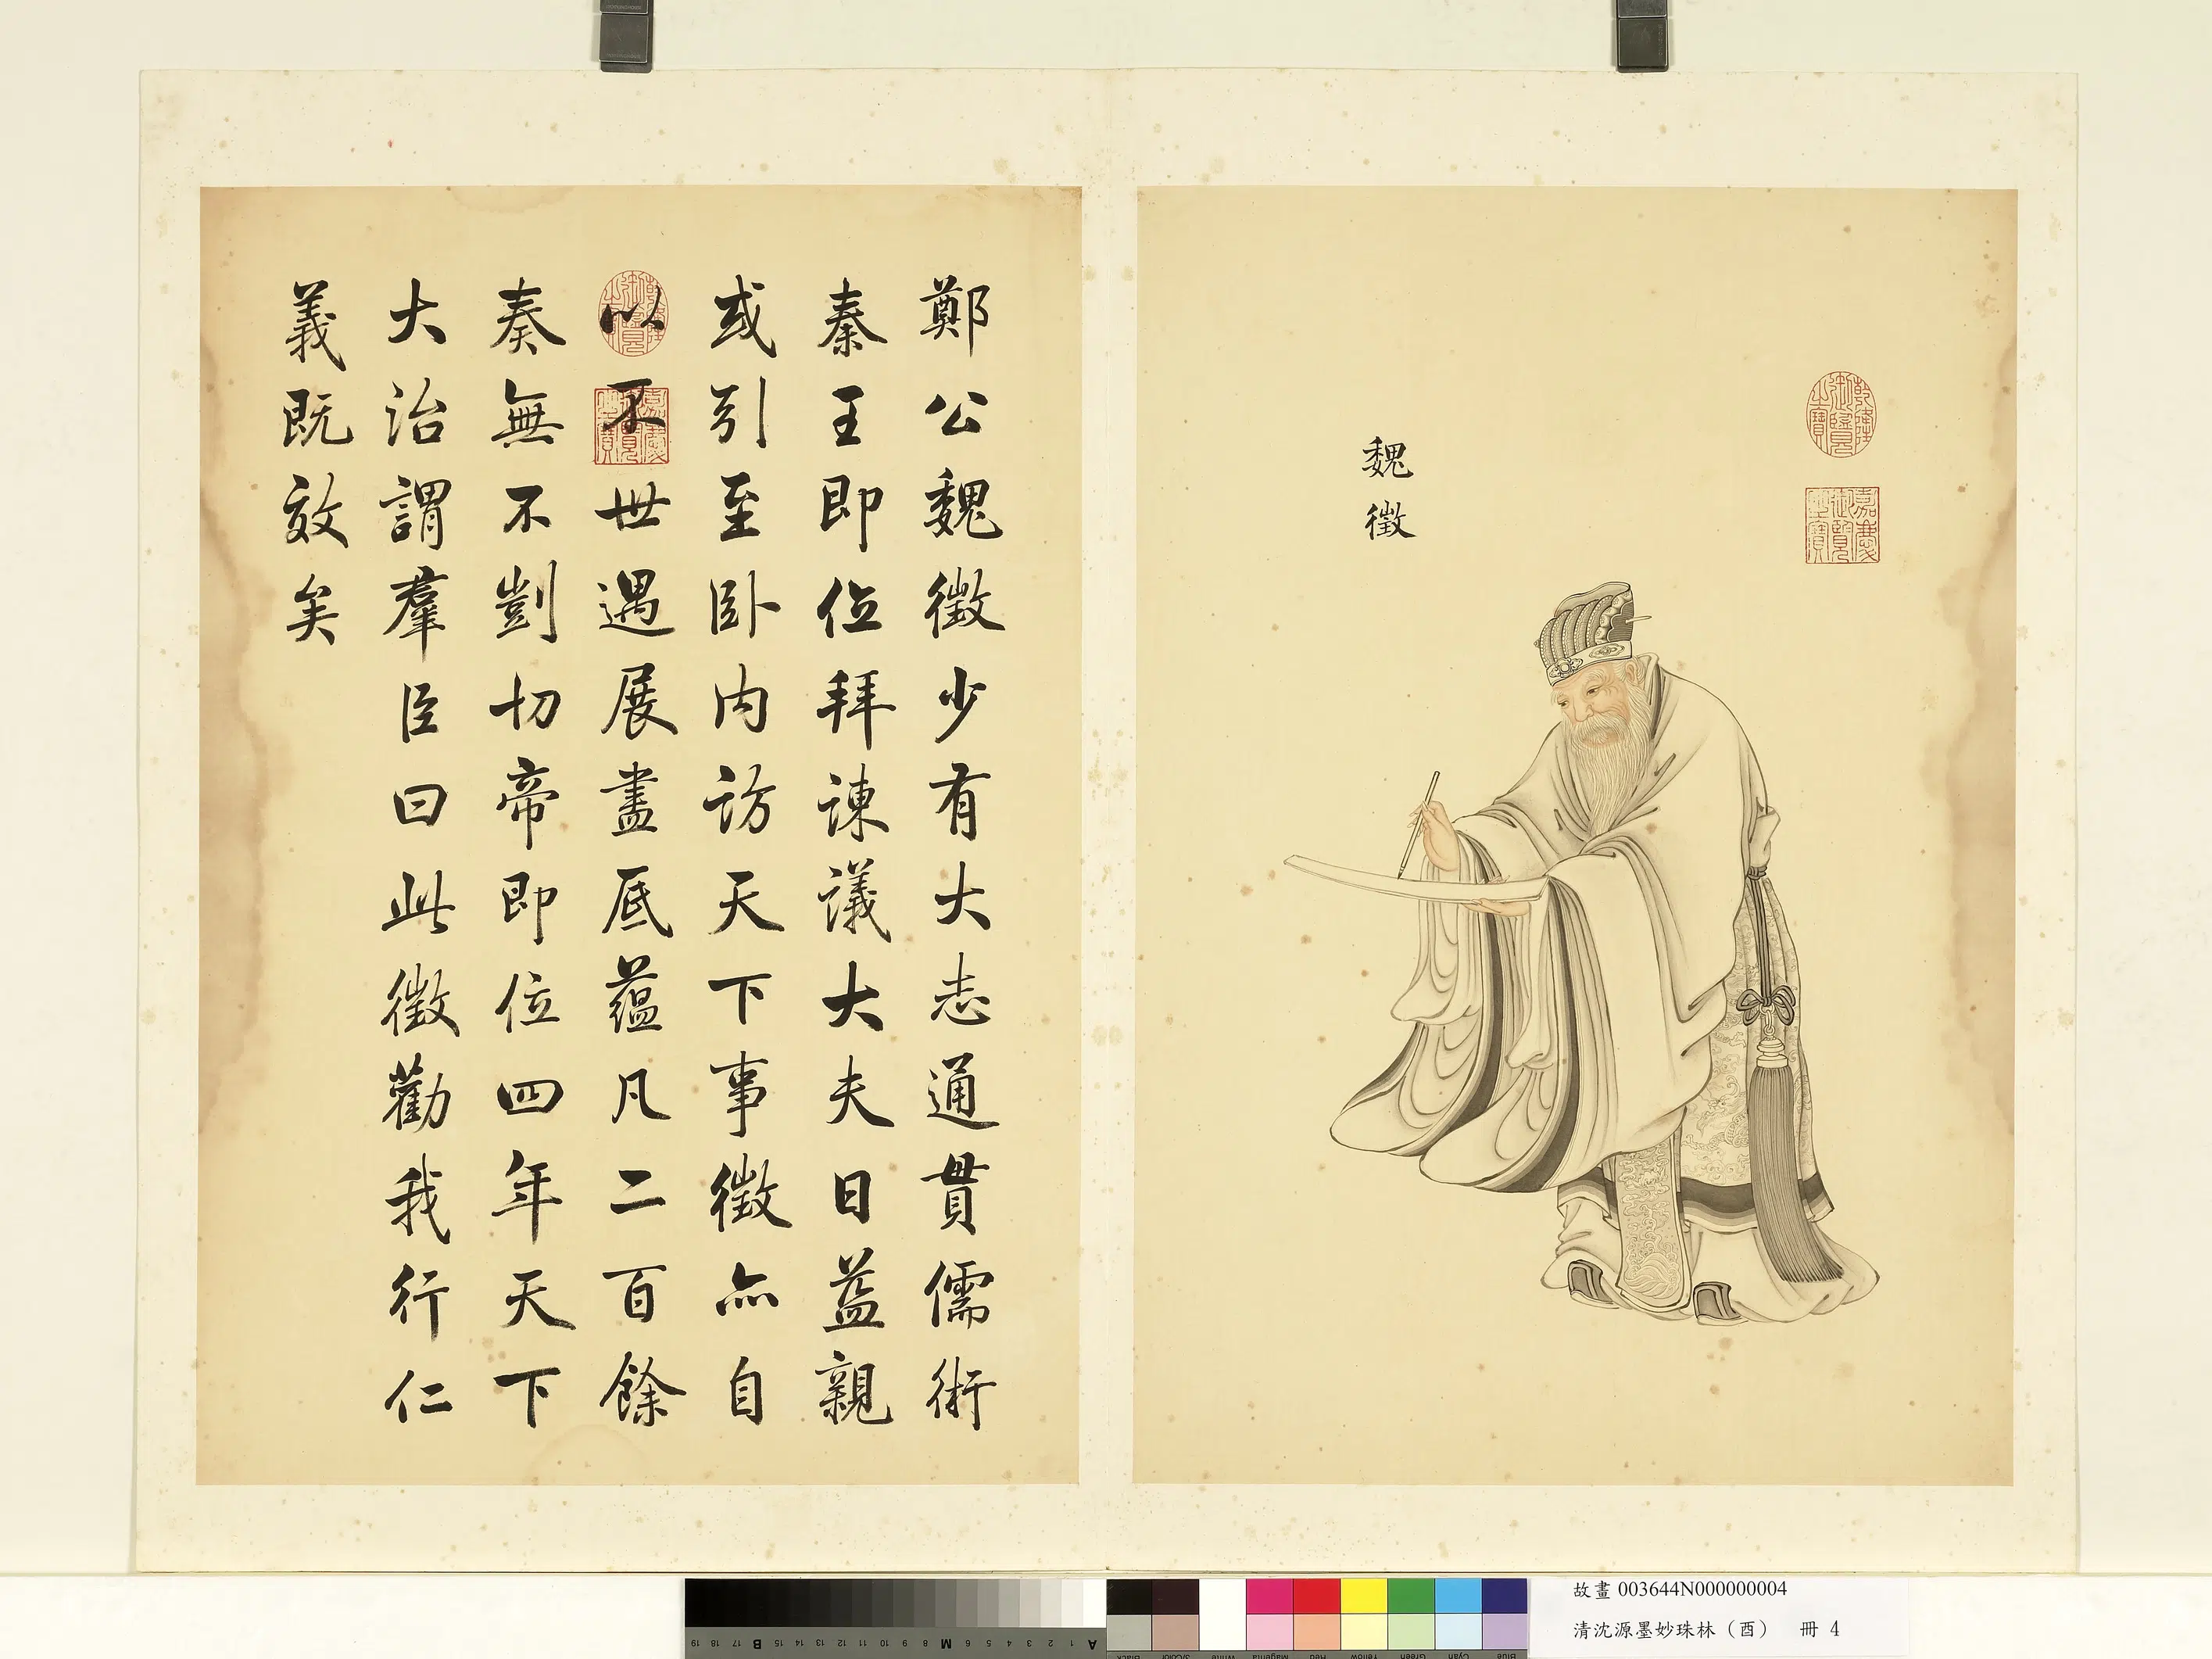 魏徵
乾隆御覽之寶
嘉慶御覽之寶
鄭公魏徵少有大志通貫儒術
秦王即位拜諫議大夫日益親
或引至卧内訪天下事徵亦自
以不世遇展盡底蘊凡二百餘
奏無不剴切帝即位四年天下
大治謂羣臣曰此徵勸我行仁
義既效矣
乾隆御覽之寶
嘉慶御覽之寶
故畫 003644N000000004
清沈源墨妙珠林（酉） 冊 4
19 18 17 B 15 14 13 12 11 10 9 8 M 6 5 4 3 2 1 A
Black 3/Color White Magenta Red Yellow Green Cyan Blue